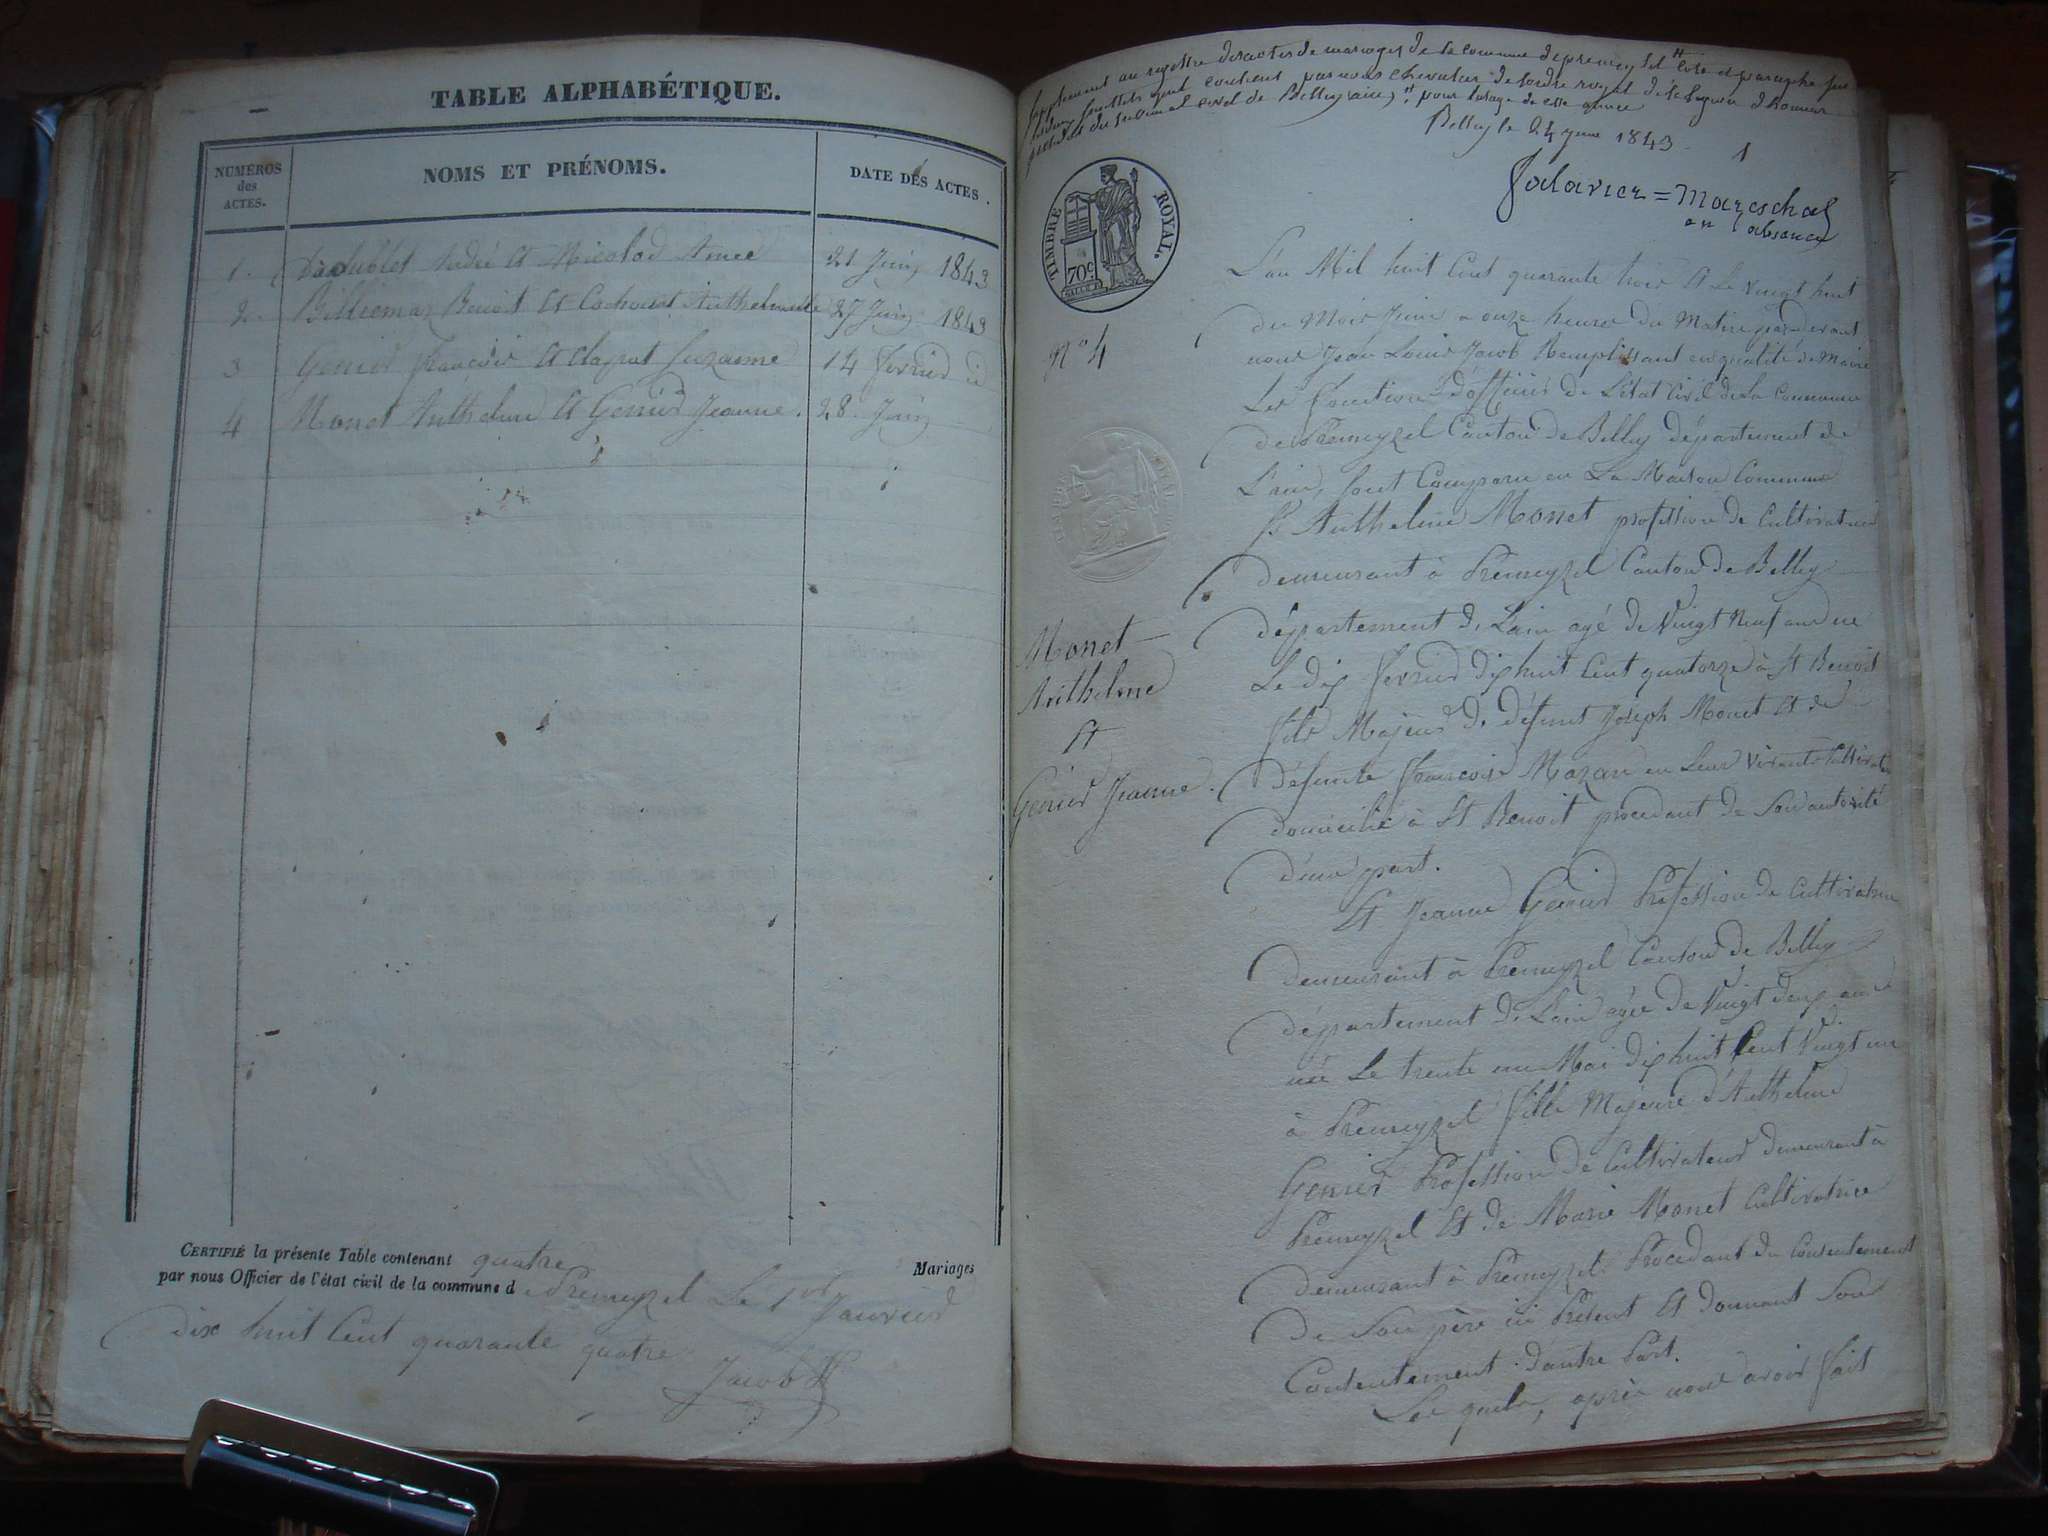 TABLE ALPHABÉTIQUE.
NUMÉROS des ACTES.
NOMS ET PRÉNOMS.
DATE DES ACTES.
1. André et Nicolod Aimée 21 Juin 1843
2. Billiemaz Benoit Et Cochouat Anthelmette 27 Juin 1843
3 Genier françois Et Clapat Suzanne 14 fevrier id
4 Monet Anthelme Et Genier Jeanne. 28. Juin
CERTIFIÉ la présente Table contenant quatre Mariages
par nous Officier de l'état civil de la commune de Premeyzel Le 1er Janvier
dix huit Cent quarante quatre
Jacob
Supplement au registre des actes de mariages de la commune de premeyzel Coté et paraphé par
feuillets qu'il contient par nous chevalier de l'ordre royal de la légion d'honneur
président du tribunal civil de Belley (ain), pour l'usage de cette année
Belley le 24 1843
1
Mareschal
en l'absence
TIMBRE ROYAL.
70c.
No 4
Monet
Anthelme
Et
Genier Jeanne.
L'an Mil huit Cent quarante trois Et Le vingt huit
du Mois Juin a onze heures du Matin pardevant
nous Jean Louis Jacob Remplissant en qualité de Maire
Les fonctions d'officier de L'état Civil de La Commune
de Premeyzel Canton de Belley département de
L'ain, sont Comparu en La Maison Commune
Sr Anthelme Monet profession de Cultivateur
demeurant à Premeyzel Canton de Belley
département de Lain agé de Vingt Neuf ans né
Le dix fevrier dix huit Cent quatorze à St Benoit
fils Majeur de défunt Joseph Monet Et de
défunte françoise Mazan en Leur vivant Cultivateurs
domicilié à St Benoit procedant de Son autorité
d'une part.
Et Jeanne Genier Profession de Cultivatrice
demeurant à Premeyzel Canton de Belley
département de Lain agée de Vingt deux ans
née Le trente un Mai dix huit Cent Vingt un
à Premeyzel fille Majeure d'Anthelme
Genier Profession de Cultivateur demeurant à
Premeyzel Et de Marie Monet Cultivatrice
demeurant à Premeyzel. Procedant du Consentement
de Son père ici Présent Et donnant Son
Consentement d'autre Part.
Les quels, après nous avoir fait